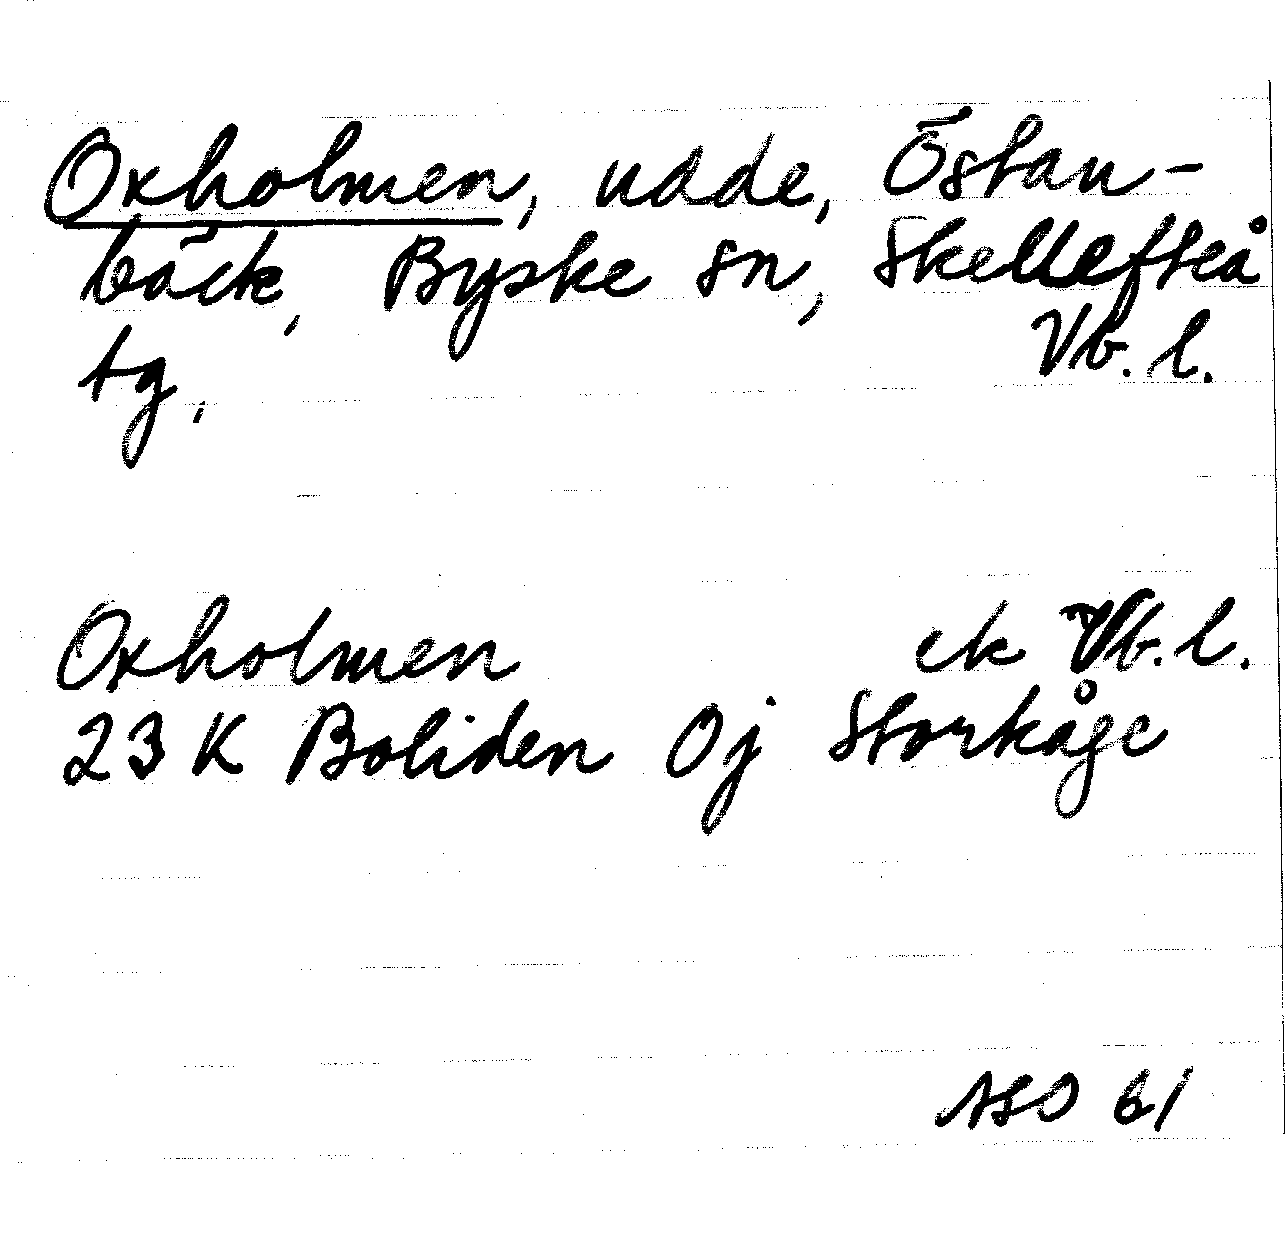 Oxholmen, udde, Östan-
bäck, Byske sn, Skellefteå
tg, Vb. l.
Oxholmen ek Vb. l.
23 K Boliden 0j Storkåge
ASO 61